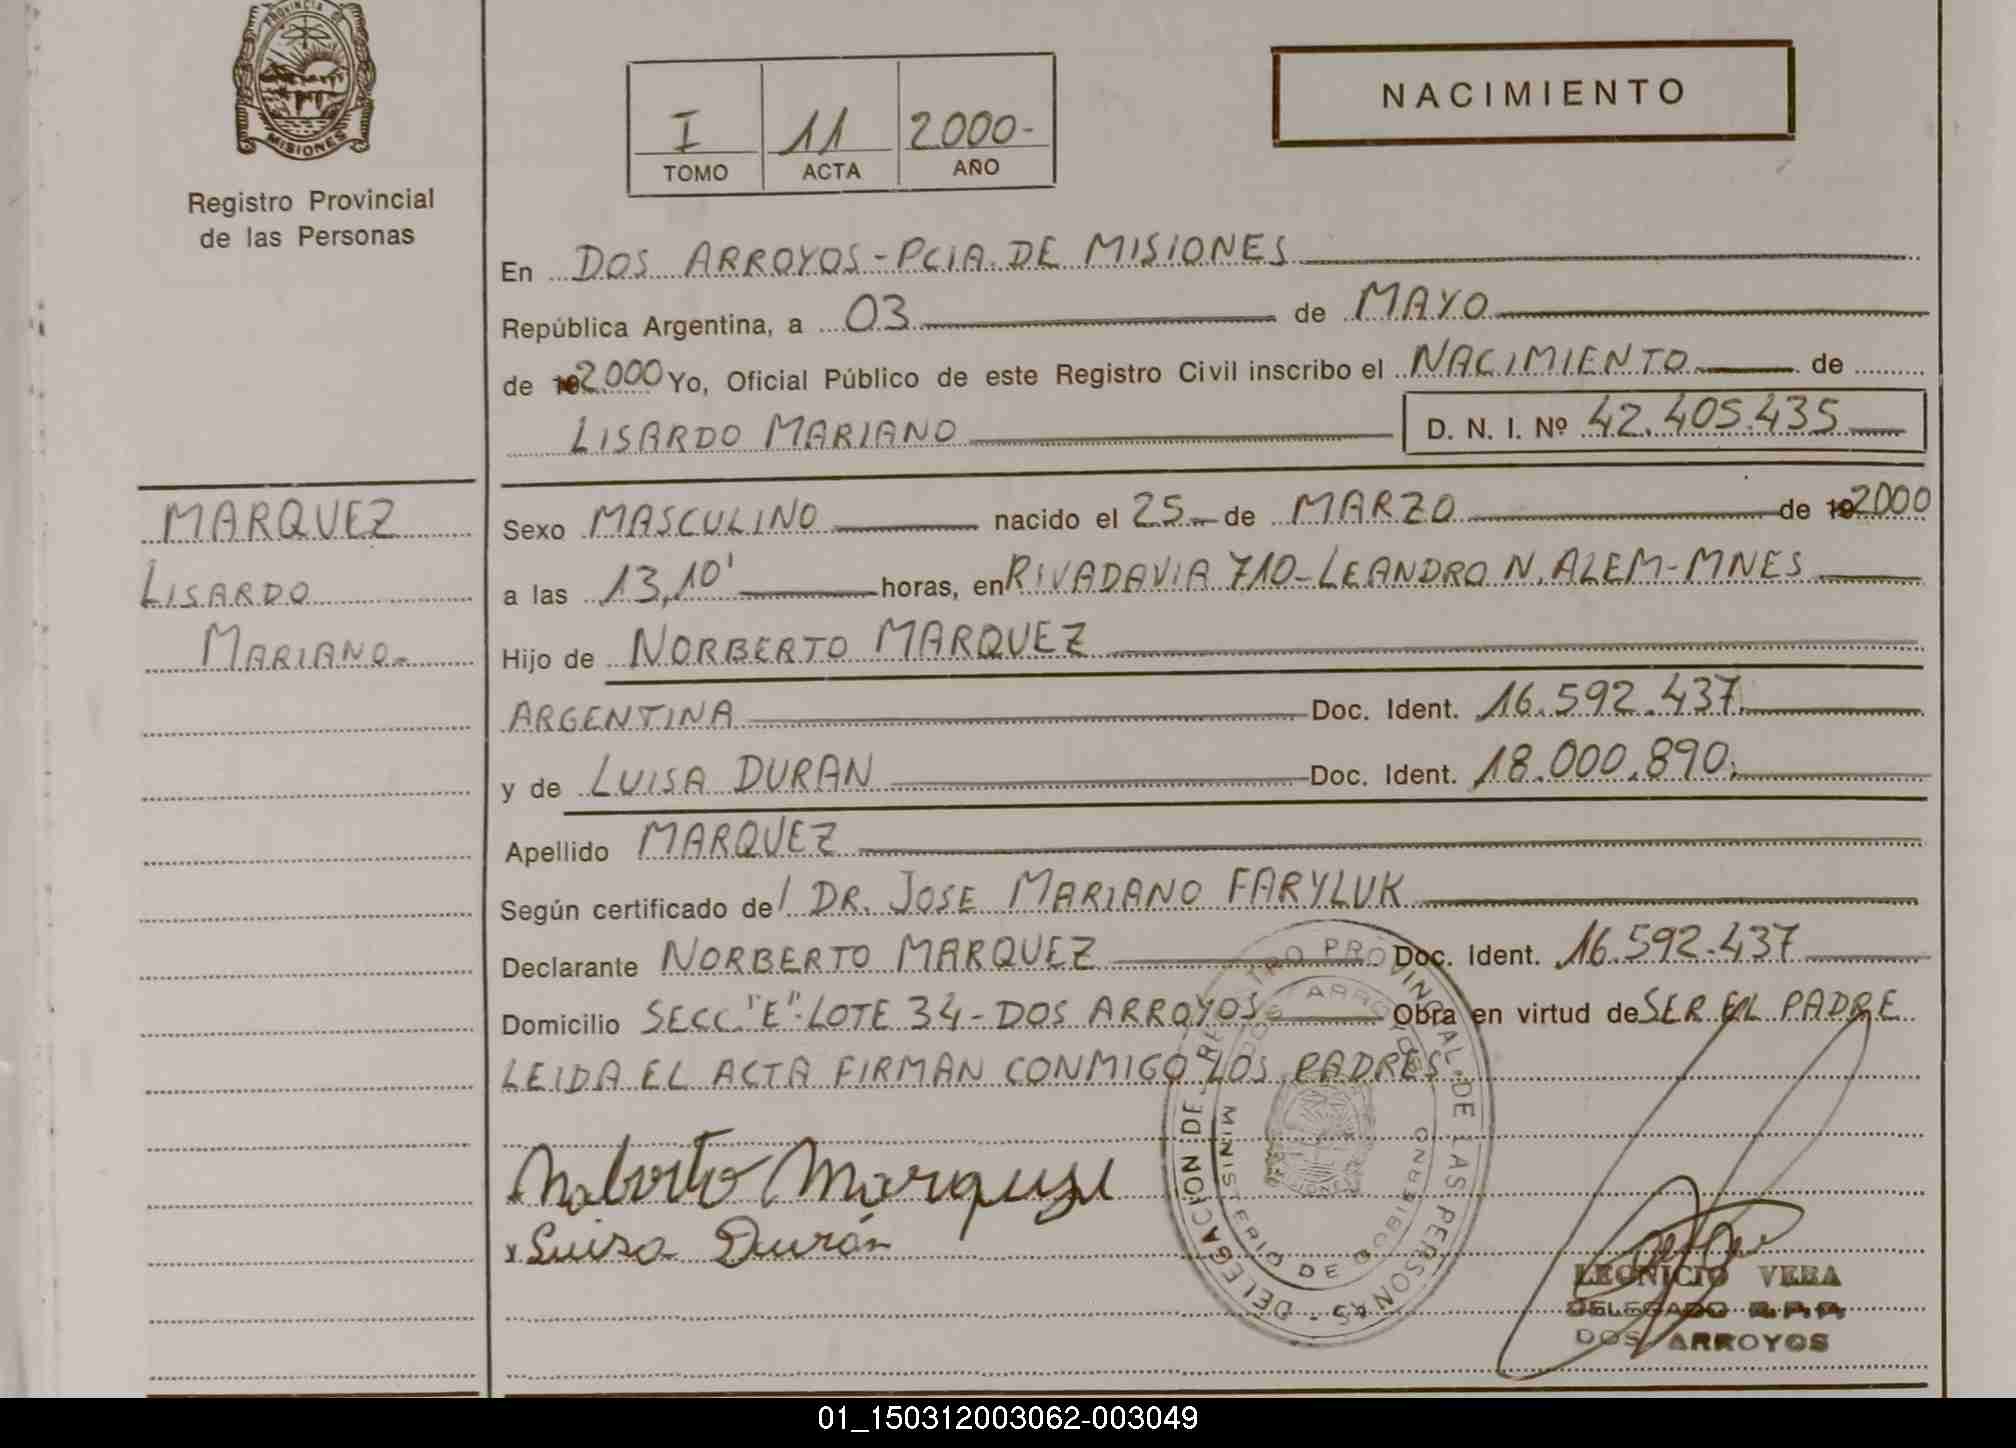 PROVINCIA DE
MISIONES
Registro Provincial
de las Personas
I 11 2000-
TOMO ACTA AÑO
NACIMIENTO
En DOS ARROYOS - PCIA. DE MISIONES
República Argentina, a 03 de MAYO
de 192.000 Yo, Oficial Público de este Registro Civil inscribo el NACIMIENTO de
LISARDO MARIANO D. N. I. Nº 42.405.435
MARQUEZ
LISARDO
MARIANO.-
Sexo MASCULINO nacido el 25 de MARZO de 192000
a las 13,10' horas, en RIVADAVIA 710-LEANDRO N. ALEM-MNES
Hijo de NORBERTO MARQUEZ
ARGENTINA Doc. Ident. 16.592.437.
y de LUISA DURAN Doc. Ident. 18.000.890.
Apellido MARQUEZ
Según certificado de/ DR. JOSE MARIANO FARYLUK
Declarante NORBERTO MARQUEZ Doc. Ident. 16.592.437
Domicilio SECC."E"-LOTE 34-DOS ARROYOS Obra en virtud de SER EL PADRE
LEIDA EL ACTA FIRMAN CONMIGO LOS PADRES
Norberto Marquez
x Luisa Durán
DELEGACION DE REGISTRO PROVINCIAL DE LAS PERSONAS -
DOS ARROYOS
MINISTERIO DE GOBIERNO
LEONICIO VERA
DELEGADO R.P.P.
DOS ARROYOS
01_150312003062-003049